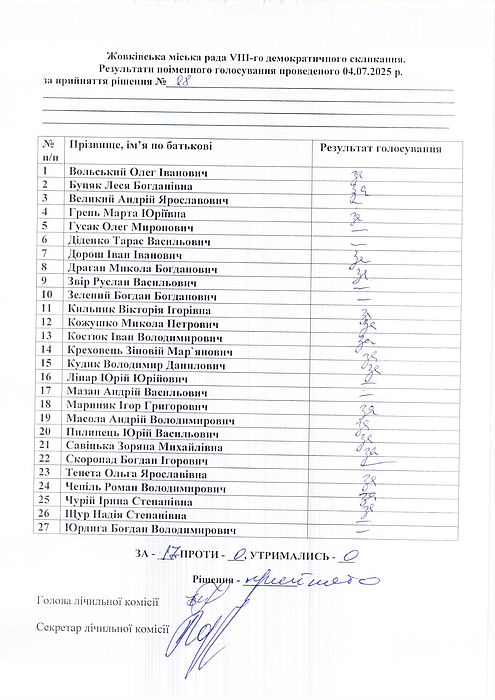 Жовківська міська рада VIII-го демократичного скликання.
Результати поіменного голосування проведеного 04.07.2025 р.
за прийняття рішення № 28
№ п/п Прізвище, ім’я по батькові Результат голосування
1 Вольський Олег Іванович за
2 Буцяк Леся Богданівна за
3 Великий Андрій Ярославович
4 Грень Марта Юріївна за
5 Гусак Олег Миронович —
6 Діденко Тарас Васильович —
7 Дорош Іван Іванович за
8 Драган Микола Богданович за
9 Звір Руслан Васильович —
10 Зелений Богдан Богданович —
11 Кильник Вікторія Ігорівна за
12 Кожушко Микола Петрович за
13 Костюк Іван Володимирович за
14 Креховець Зіновій Мар`янович за
15 Кудик Володимир Данилович за
16 Ліпар Юрій Юрійович
17 Мазан Андрій Васильович —
18 Мариняк Ігор Григорович за
19 Масола Андрій Володимирович за
20 Пилипець Юрій Васильович за
21 Савіцька Зоряна Михайлівна за
22 Скоропад Богдан Ігорович —
23 Тенета Ольга Ярославівна за
24 Чепіль Роман Володимирович за
25 Чурій Ірина Степанівна за
26 Щур Надія Степанівна за
27 Юрдига Богдан Володимирович —
ЗА - 17 ПРОТИ - 0, УТРИМАЛИСЬ - 0
Рішення - прийнято
Голова лічильної комісії
Секретар лічильної комісії